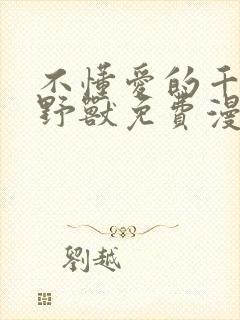 不懂愛的千
野獸免費漫
劉越